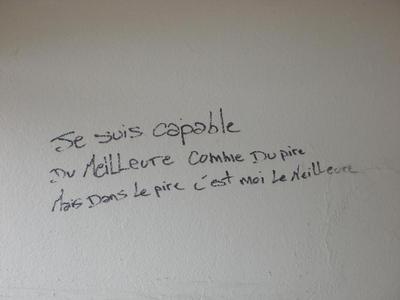 Je suis capable
Du Meilleure Comme Du pire
Mais Dans Le pire c'est moi Le Meilleure